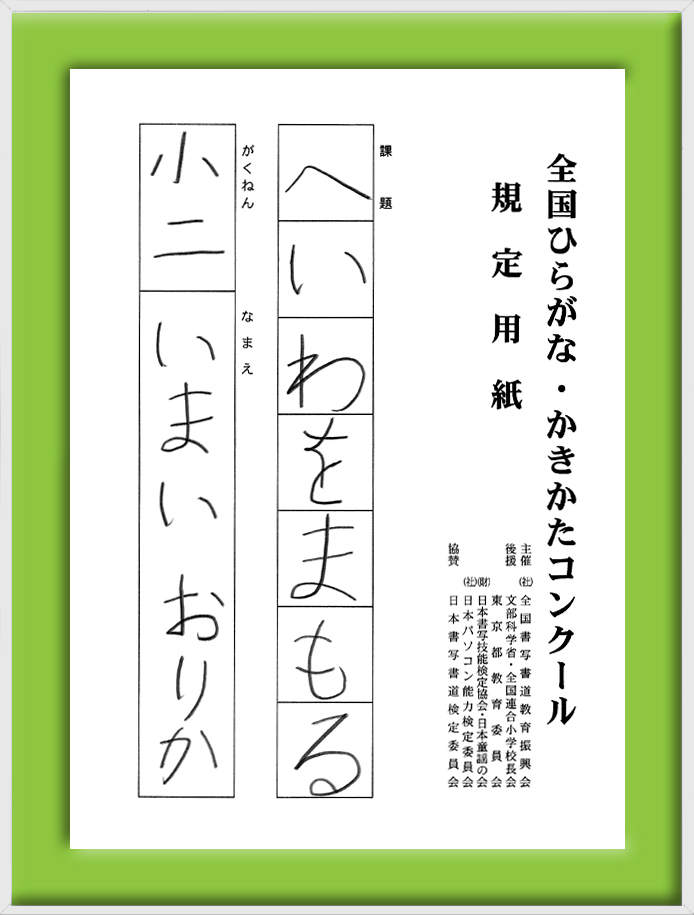 全国ひらがな・かきかたコンクール
規定用紙
主催 (社)全国書写書道教育振興会
後援 文部科学省・全国連合小学校長会
東京都教育委員会
(財)日本書写技能検定協会・日本童謡の会
(社)日本パソコン能力検定委員会
協賛 日本書写書道検定委員会
課題
へいわをまもる
がくねん
小二
なまえ
いまい おりか